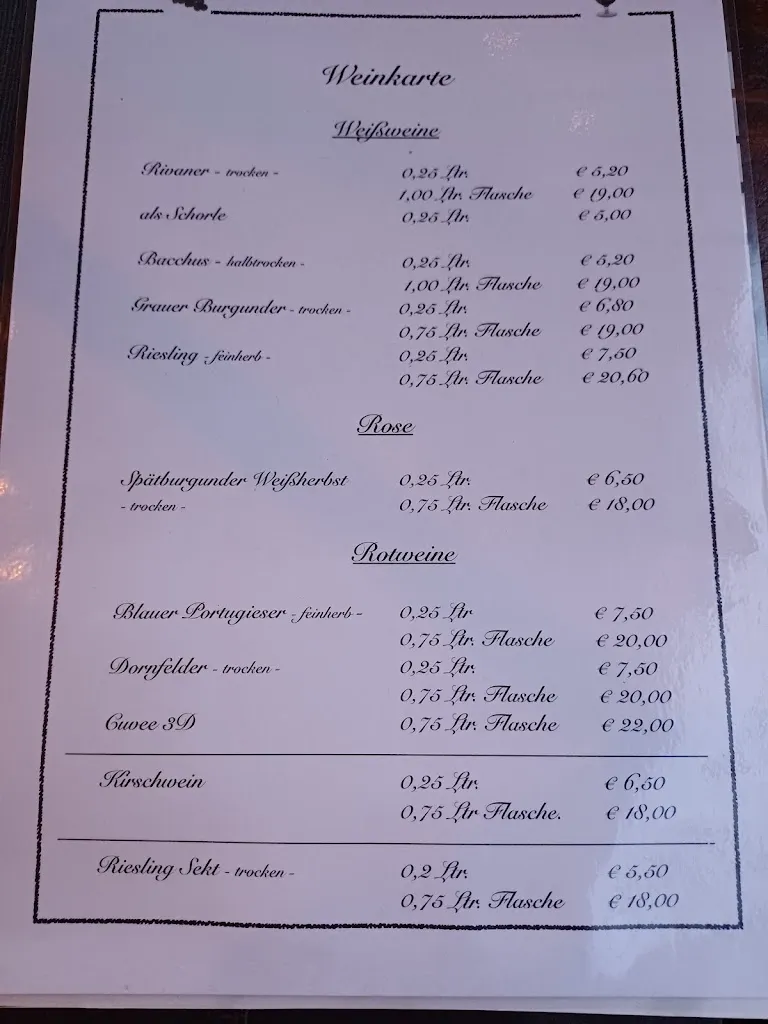 Weinkarte
Weißweine
Rivaner - trocken - 0,25 Ltr. € 5,20
1,00 Ltr. Flasche € 19,00
als Schorle 0,25 Ltr. € 5,00
Bacchus - halbtrocken - 0,25 Ltr. € 5,20
1,00 Ltr. Flasche € 19,00
Grauer Burgunder - trocken - 0,25 Ltr. € 6,80
0,75 Ltr. Flasche € 19,00
Riesling - feinherb - 0,25 Ltr. € 7,50
0,75 Ltr. Flasche € 20,60
Rose
Spätburgunder Weißherbst 0,25 Ltr. € 6,50
- trocken - 0,75 Ltr. Flasche € 18,00
Rotweine
Blauer Portugieser - feinherb - 0,25 Ltr € 7,50
0,75 Ltr. Flasche € 20,00
Dornfelder - trocken - 0,25 Ltr. € 7,50
0,75 Ltr. Flasche € 20,00
Cuvee 3D 0,75 Ltr. Flasche € 22,00
Kirschwein 0,25 Ltr. € 6,50
0,75 Ltr Flasche. € 18,00
Riesling Sekt - trocken - 0,2 Ltr. € 5,50
0,75 Ltr. Flasche € 18,00